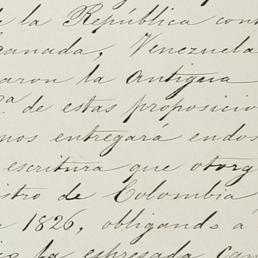 de la República con
Granada, Venezuela
aron la Antigua
ª. de estas proposicio
nos entregara endos
escritura que otorg
istro de Colombia
1826, obligando á
la espresada